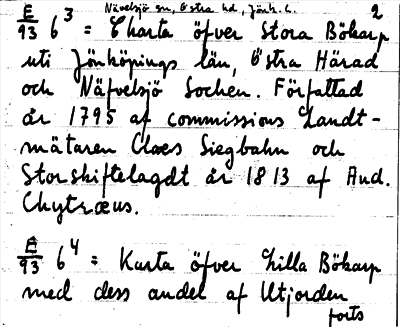 Nävelsjö sn, Östra hd, Jönk. l. 2
E/93 6³ = Charta öfver Stora Bökarp
uti Jönköpings län, Östra Härad
och Näfvelsjö Sochen. Författad
år 1795 af commissions Landt-
mätaren Claes Siegbahn och
Storskiftelagdt år 1813 af And.
Chytræus.
E/93 6⁴ = Karta öfver Lilla Bökarp
med dess andel af Utjorden
forts